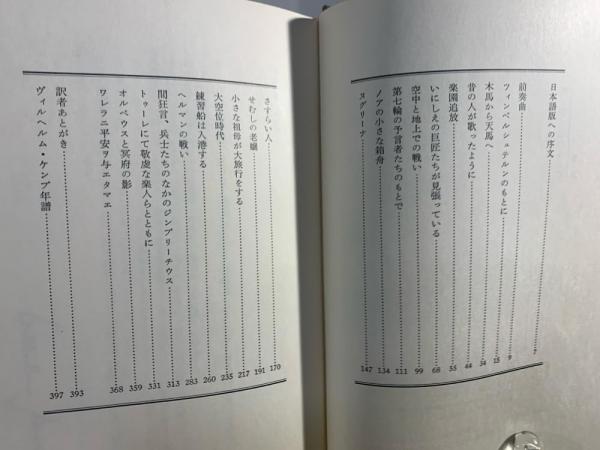 日本語版への序文 7
前奏曲 9
ツィンベルシュテルンのもとに 15
木馬から天馬へ 34
昔の人が歌ったように 44
楽園追放 55
いにしえの巨匠たちが見張っている 68
空中と地上での戦い 99
第七輪の予言者たちのもとで 111
ノアの小さな箱舟 134
スグリーナ 147
さすらい人 170
せむしの老嬢 191
小さな祖母が大旅行をする 217
大空位時代 235
練習船は入港する 260
ヘルマンの戦い 283
間狂言、兵士たちのなかのジンプリーチウス 313
トゥーレにて敬虔な楽人らとともに 331
オルペウスと冥府の影 359
ワレラニ平安ヲ与エタマエ 368
訳者あとがき 393
ヴィルヘルム・ケンプ年譜 397